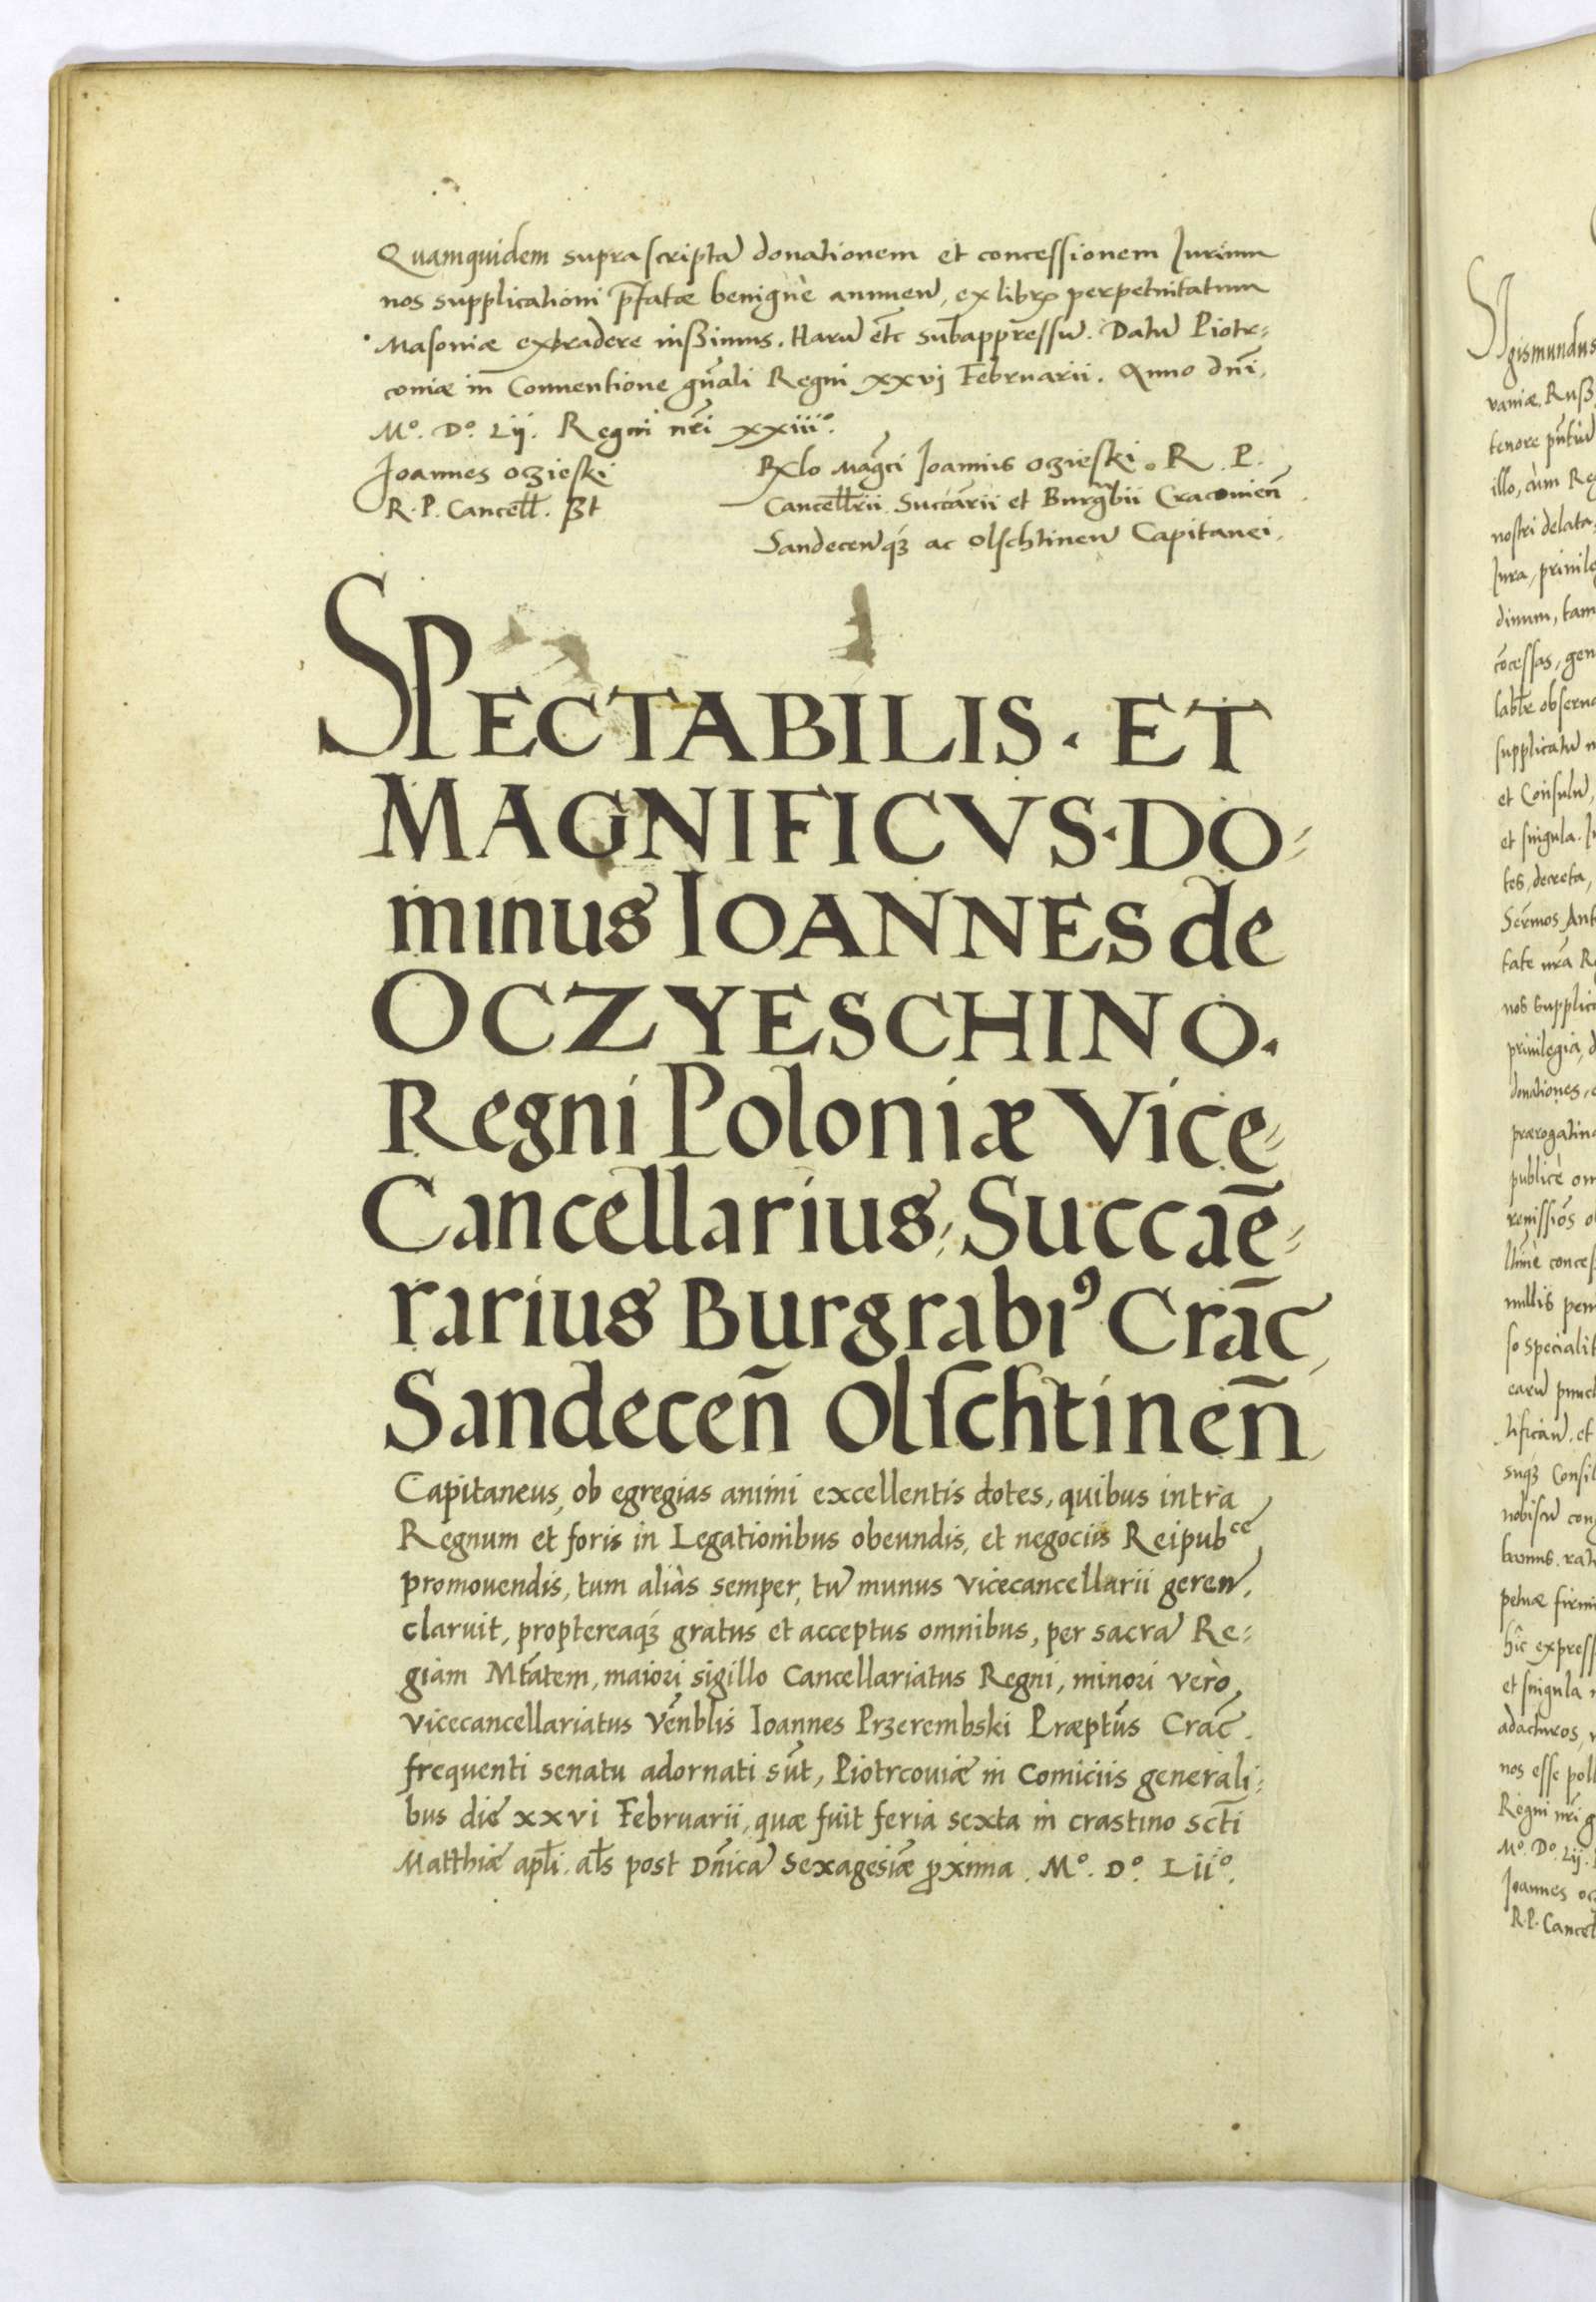 Quamquidem suprascriptā donationem et concessionem Jurium
nos supplicationi p̄fatæ benignè annuen̄, ex libr̄ perpetuitatum
Masoniæ extradere iussimus. Harū et̄c subappressū. Datū Piotr=
coniæ in Conuentione gn̄ali Regni xxvj Februarii. Anno dn̄i.
Mº. Dº. Lij. Regni nr̄i xxiiiº.
Joannes oczieski
R. P. Cancell̄. sst
Rl̄o Maḡci Joannis oczieski. R. P.
Cancell̄rii Succ̄arii et Burgr̄bii Cracouien̄
Sandecen̄q́ꝫ ac olschtinen̄ Capitanei.
SPECTABILIS · ET
MAGNIFICVS · DO=
minus IOANNES de
OCZYESCHINO.
Regni Poloniæ Vice=
Cancellarius, Succaē=
rarius Burgrabi⁹ Crac̄,
Sandecen̄ Olschtinen̄,
Capitaneus, ob egregias animi excellentis dotes, quibus intra
Regnum et foris in Legationibus obeundis, et negociis Reipubᶜᵉ,
promouendis, tum aliàs semper, tū munus vicecancellarii geren̄.
claruit, proptereaq́ꝫ gratus et acceptus omnibus, per sacrā Re=
giam Mt̄atem, maiori sigillo Cancellariatus Regni, minori verò
vicecancellariatus Ven̄blis Ioannes Przerembski Præpt̄us Crac̄.
frequenti senatu adornati sūt, Piotrcouiæ in Comiciis generali=
bus die xxvi Februarii, quæ fuit feria sexta in crastino sct̄i
Matthiæ apl̄i. al̄s post Dn̄icā Sexagesiæ ꝓxima. Mº. Dº. Liiº.
gismundus
vaniæ. Russ
tenore pn̄tiū
illo, cùm Reg
nostri delata,
Jura, priuile
dinum, tam
cōcessas, gen
labl̄r obserua
supplicatū n
et Consulū,
et singula. I
tes, decreta,
Ser̄mos Ant
tate nr̄a R
nos supplic
priuilegia, d
donationes, c
prærogatiua
publicè om
remissiōs o
conces
nullis pen
so Specialit
earū
lificān. et
suq́ꝫ Consil
nobiscū con
bamus. rat
petuæ firmi
hîc express
et singula
adacturos,
nos esse pol
Regni nr̄i g
Mº. Dº. Lij.
Joannes oc
R. P. Cancel